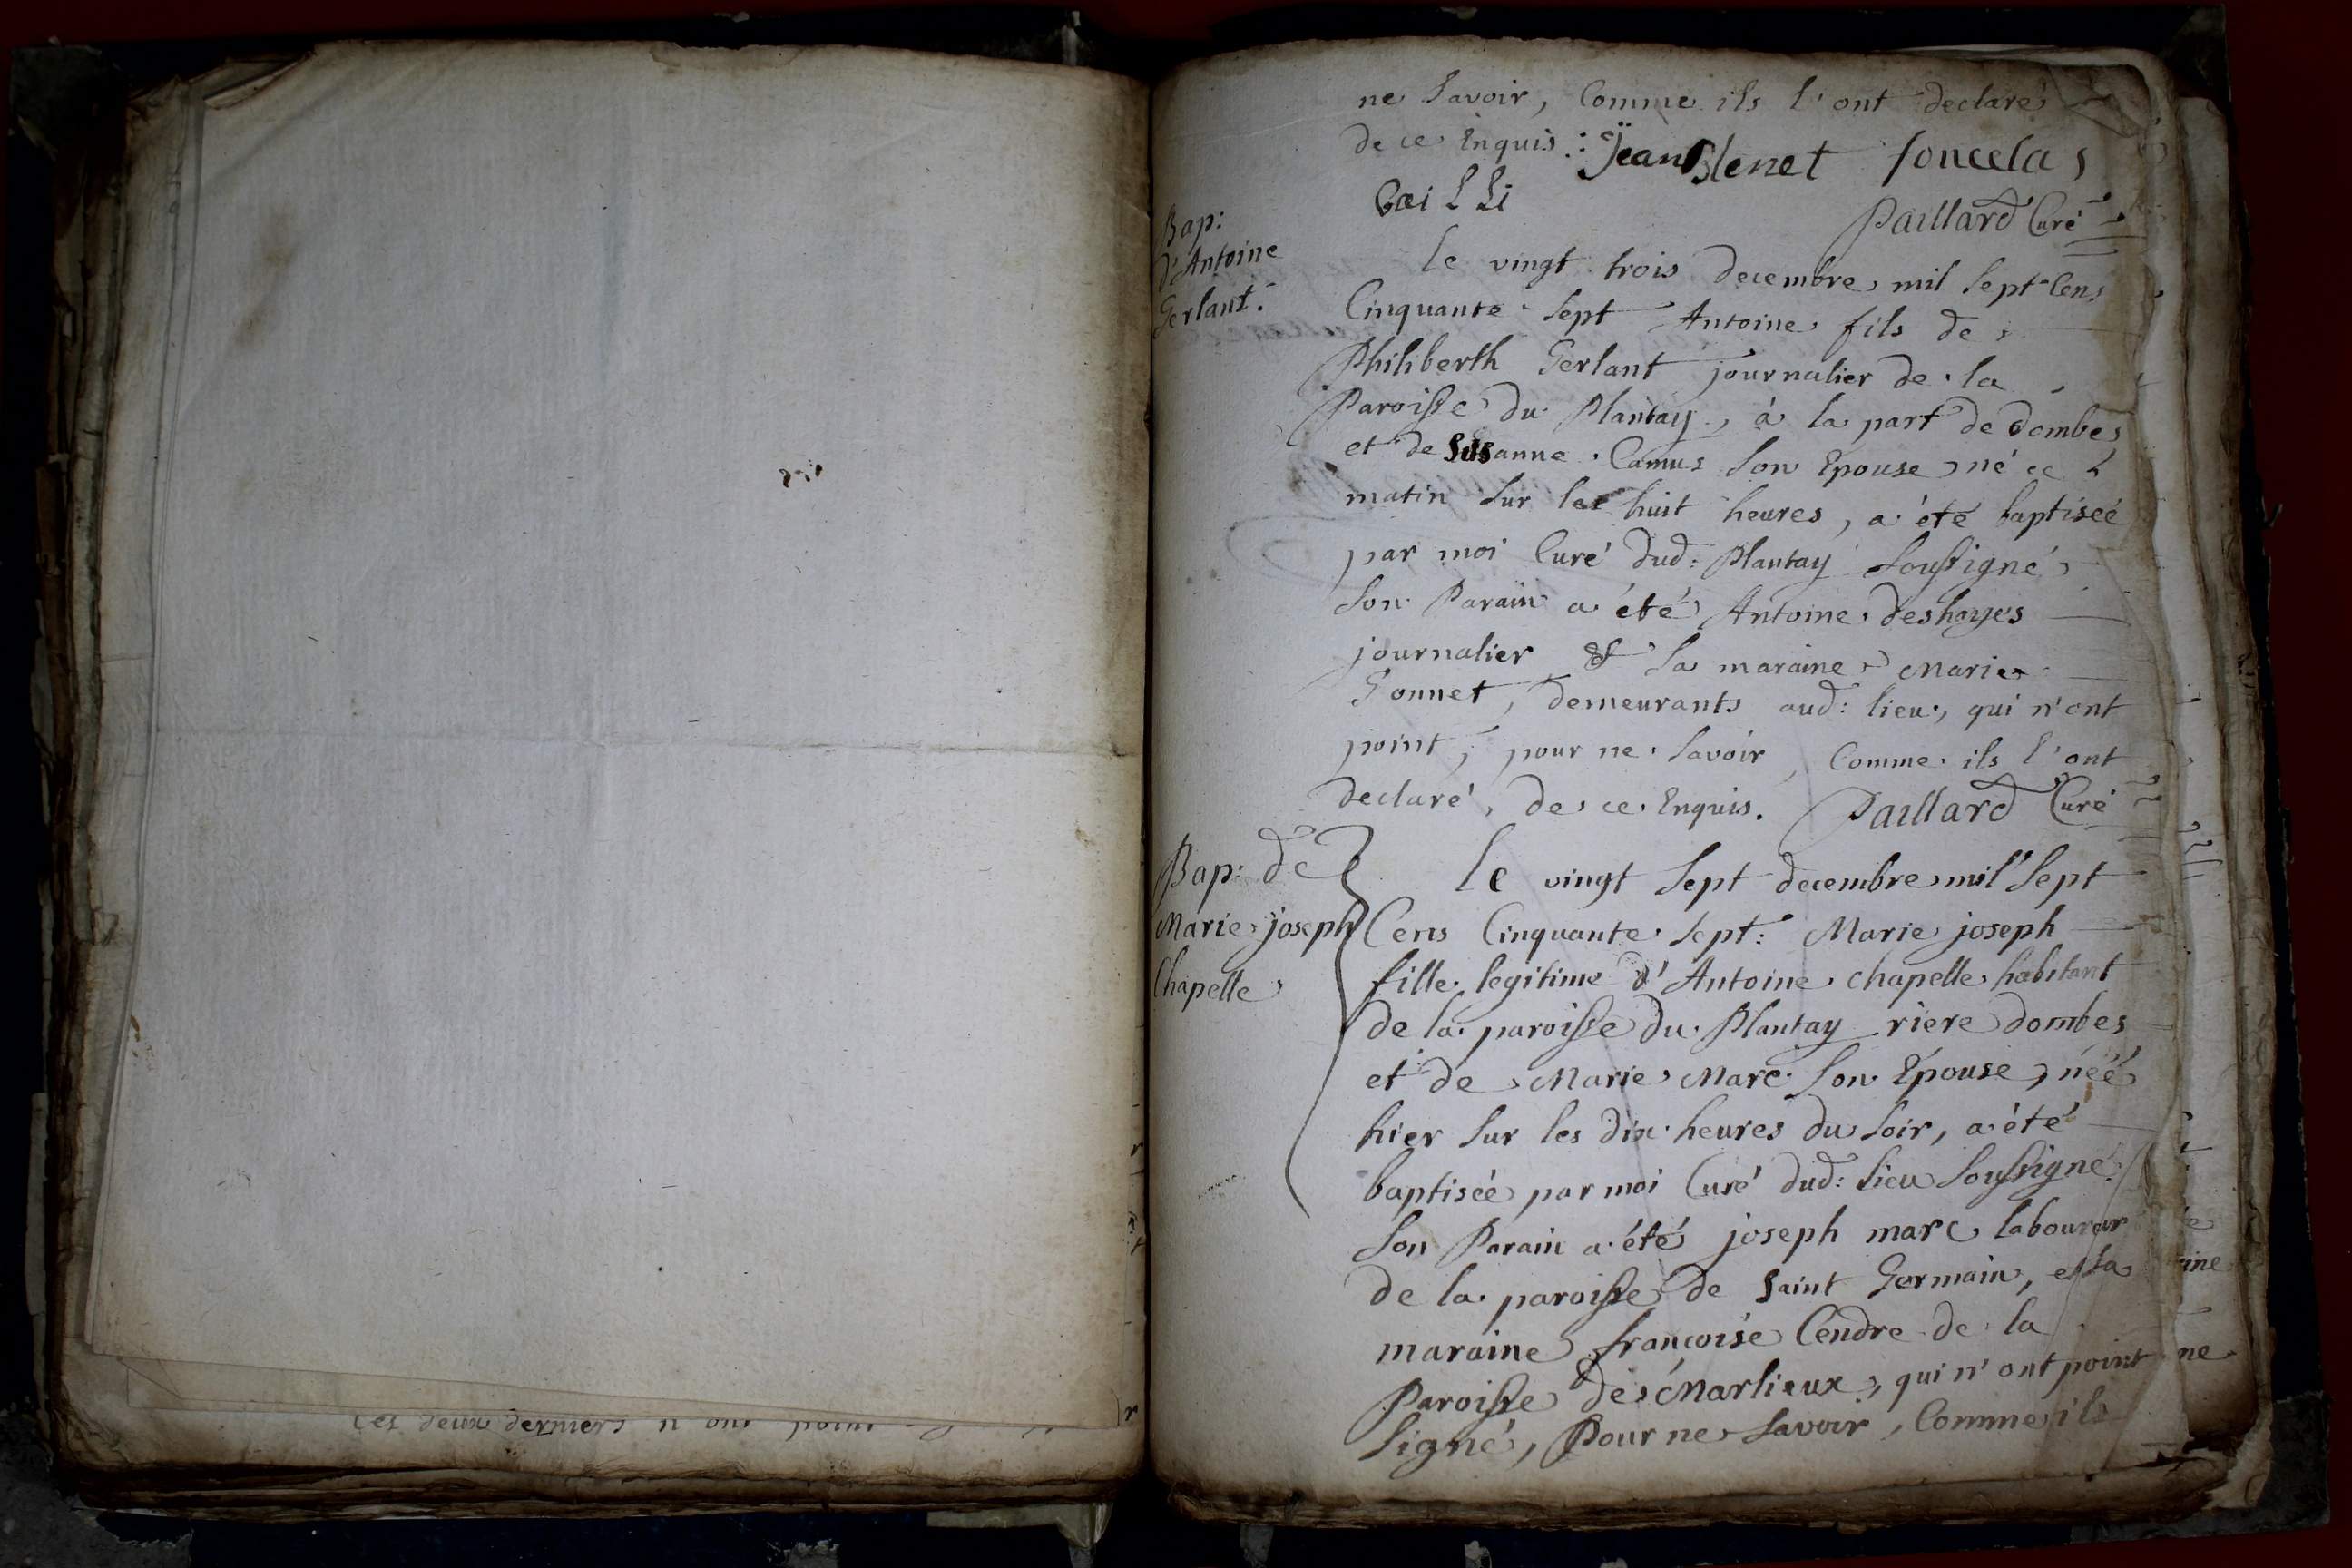 Ces deux derniers n'ont point
ne savoir, Comme ils l'ont declaré
de ce Enquis: Jean Blenet foncelas
Paillard Curé
Bap:
d'Antoine
Gerlant.
le vingt trois decembre mil sept Cens
Cinquante sept Antoine fils de
Philiberth Gerlant journalier de la
Paroisse du Plantay, à la part de dombes
et de Susanne Camus son Epouse né ce
matin sur les huit heures, a été baptiseé
par moi Curé dud: Plantay soussigné
son Parain a été Antoine deshayes
journalier & sa maraine Marie
Gonnet, demeurants aud: lieu, qui n'ont
point, pour ne savoir, Comme ils l'ont
declaré, de ce Enquis. Paillard Curé
Bap: de
Marie joseph
Chapelle
le vingt sept decembre mil sept
Cens Cinquante sept: Marie joseph
fille legitime d'Antoine chapelle habitant
de la paroisse du Plantay riere dombes
et de Marie Marc son Epouse, néé
hier sur les dix heures du soir, a été
baptisée par moi Curé dud: lieu soussigné.
son Parain a été joseph marc laboureur
de la paroisse de saint Germain, et sa
maraine françoise Cendre de la
Paroisse de Marlieux, qui n'ont point
signé, Pour ne savoir, Comme ils